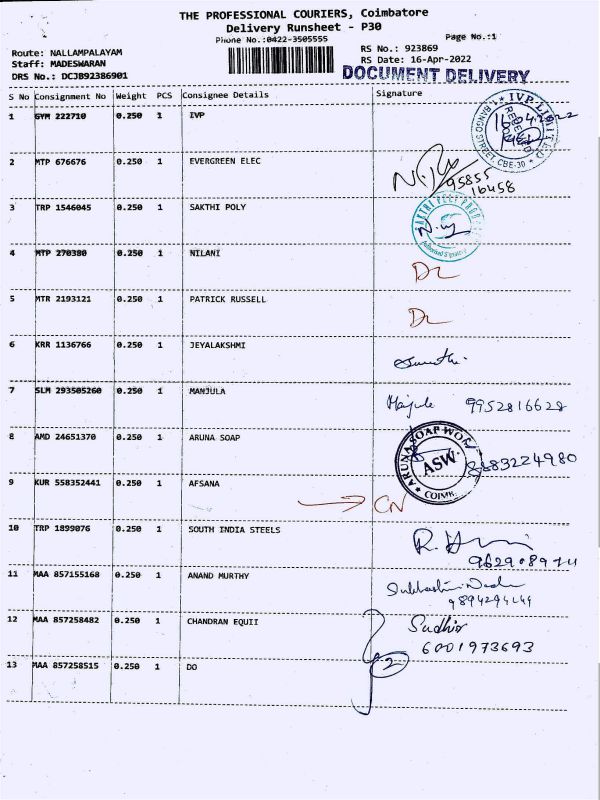 THE PROFESSIONAL COURIERS, Coimbatore
Delivery Runsheet - P30
Phone No.:0422-3505555
Page No.:1
Route: NALLAMPALAYAM
RS No.: 923869
Staff: MADESWARAN
RS Date: 16-Apr-2022
DRS No.: DCJB92386901
DOCUMENT DELIVERY
S No Consignment No Weight PCS Consignee Details Signature
1 GYM 222710 0.250 1 IVP
IVP LIMITED
16.04.2022
2 MTP 676676 0.250 1 EVERGREEN ELEC
95855
16458
3 TRP 1546045 0.250 1 SAKTHI POLY
Authorised Signatory
4 MTP 270380 0.250 1 NILANI
DL
5 MTR 2193121 0.250 1 PATRICK RUSSELL
DL
6 KRR 1136766 0.250 1 JEYALAKSHMI
7 SLM 293505260 0.250 1 MANJULA
9952816628
8 AMD 24651370 0.250 1 ARUNA SOAP
ARUNA SOAP WOR
ASW.
8883224980
9 KUR 558352441 0.250 1 AFSANA
CN
10 TRP 1899076 0.250 1 SOUTH INDIA STEELS
11 MAA 857155168 0.250 1 ANAND MURTHY
12 MAA 857258482 0.250 1 CHANDRAN EQUII
Sudhir
6001973693
13 MAA 857258515 0.250 1 DO
2